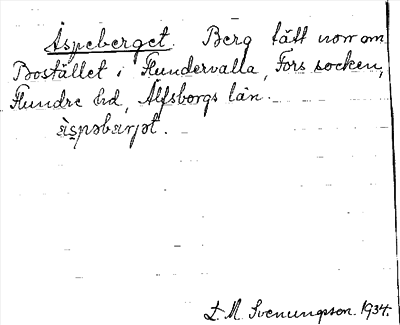 Aspeberget. Berg tätt norr om
Bostället i Flundervalla, Fors socken,
Flundre hd, Älfsborgs län.
àspəbærjət.
L. M. Svenungson. 1934.